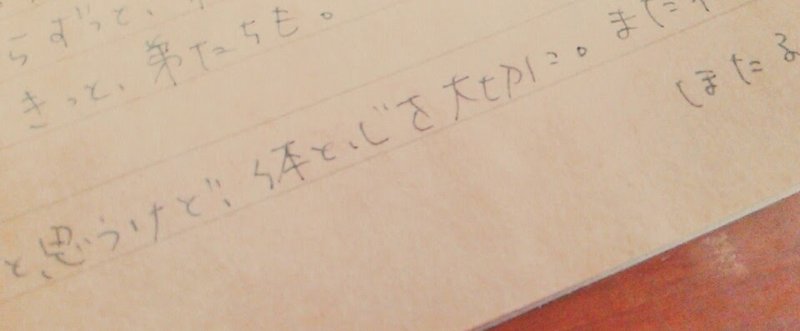 らずっと、
きっと、弟たちも。
と思うけど、体と心を大切に。また
ほたる